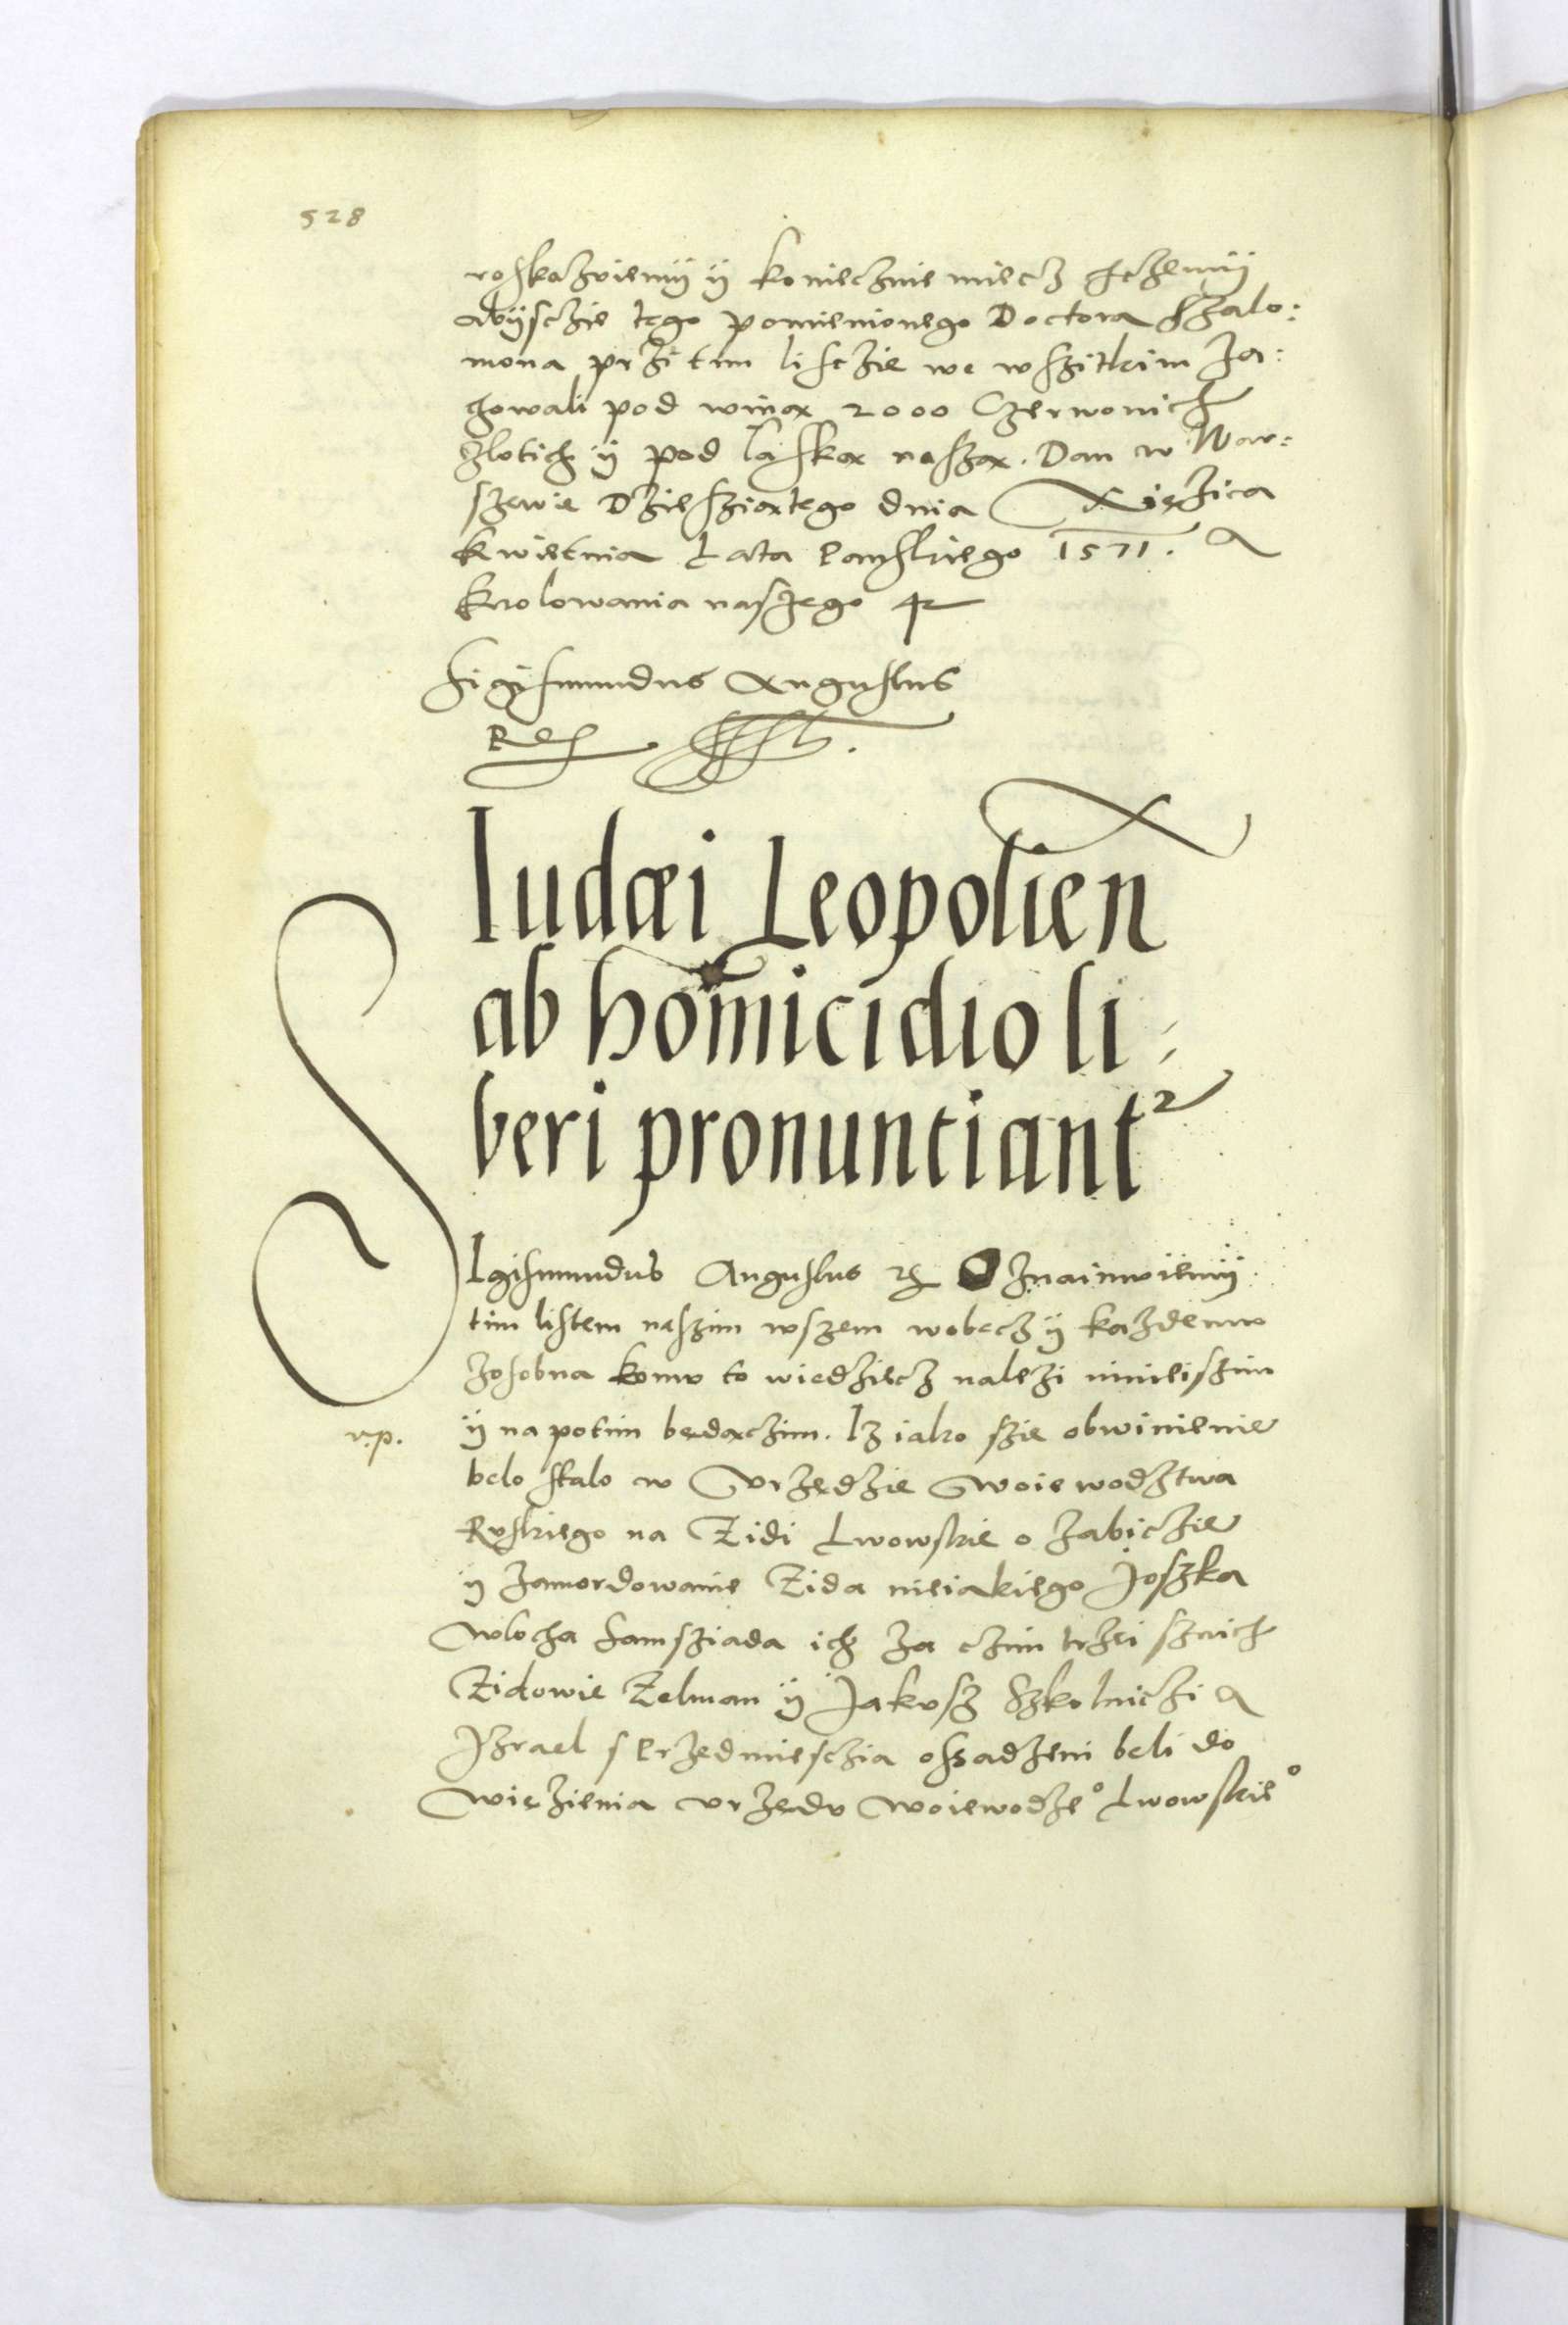 528
roskazuiemÿ ÿ koniecznie miecz chczemÿ
abÿsczie tego pomienionego Doctora Szalo:
mona przi tim liscie we wszitkim za:
chowali pod winą 2000 Czerwonich
zlotich ÿ pod laską naszą. Dan w War:
szewie Dziesziątego dnia Xiężica
kwietnia Lata Panskiego 1571. A
krolowania naszego 42
Sigismundus Augustus
Rex
Iudæi Leopolien
ab homicidio li=
beri pronuntiant
SIgismundus Augustus Oznaimuiemÿ
tim listem naszim wszem wobecz ÿ kazdemu
zosobna komu to wiedziecz nalezi ninieiszim
v.p.
ÿ na potim będączim. Iz iako szie obwinienie
belo stalo w Vrzędzie Woiewodztwa
Ruskiego na Zidi Lwowskie o zabiczie
ÿ zamordowanie Zida nieiakiego Joszka
Wlocha Samsziada ich za czim trzei sznich
Zidowie Zelman ÿ Jakusz Szkolniczi a
Jzrael s Przedmiesczia ossadzeni beli do
Więzienia vrzędu Woiewodze° Lwowskie°